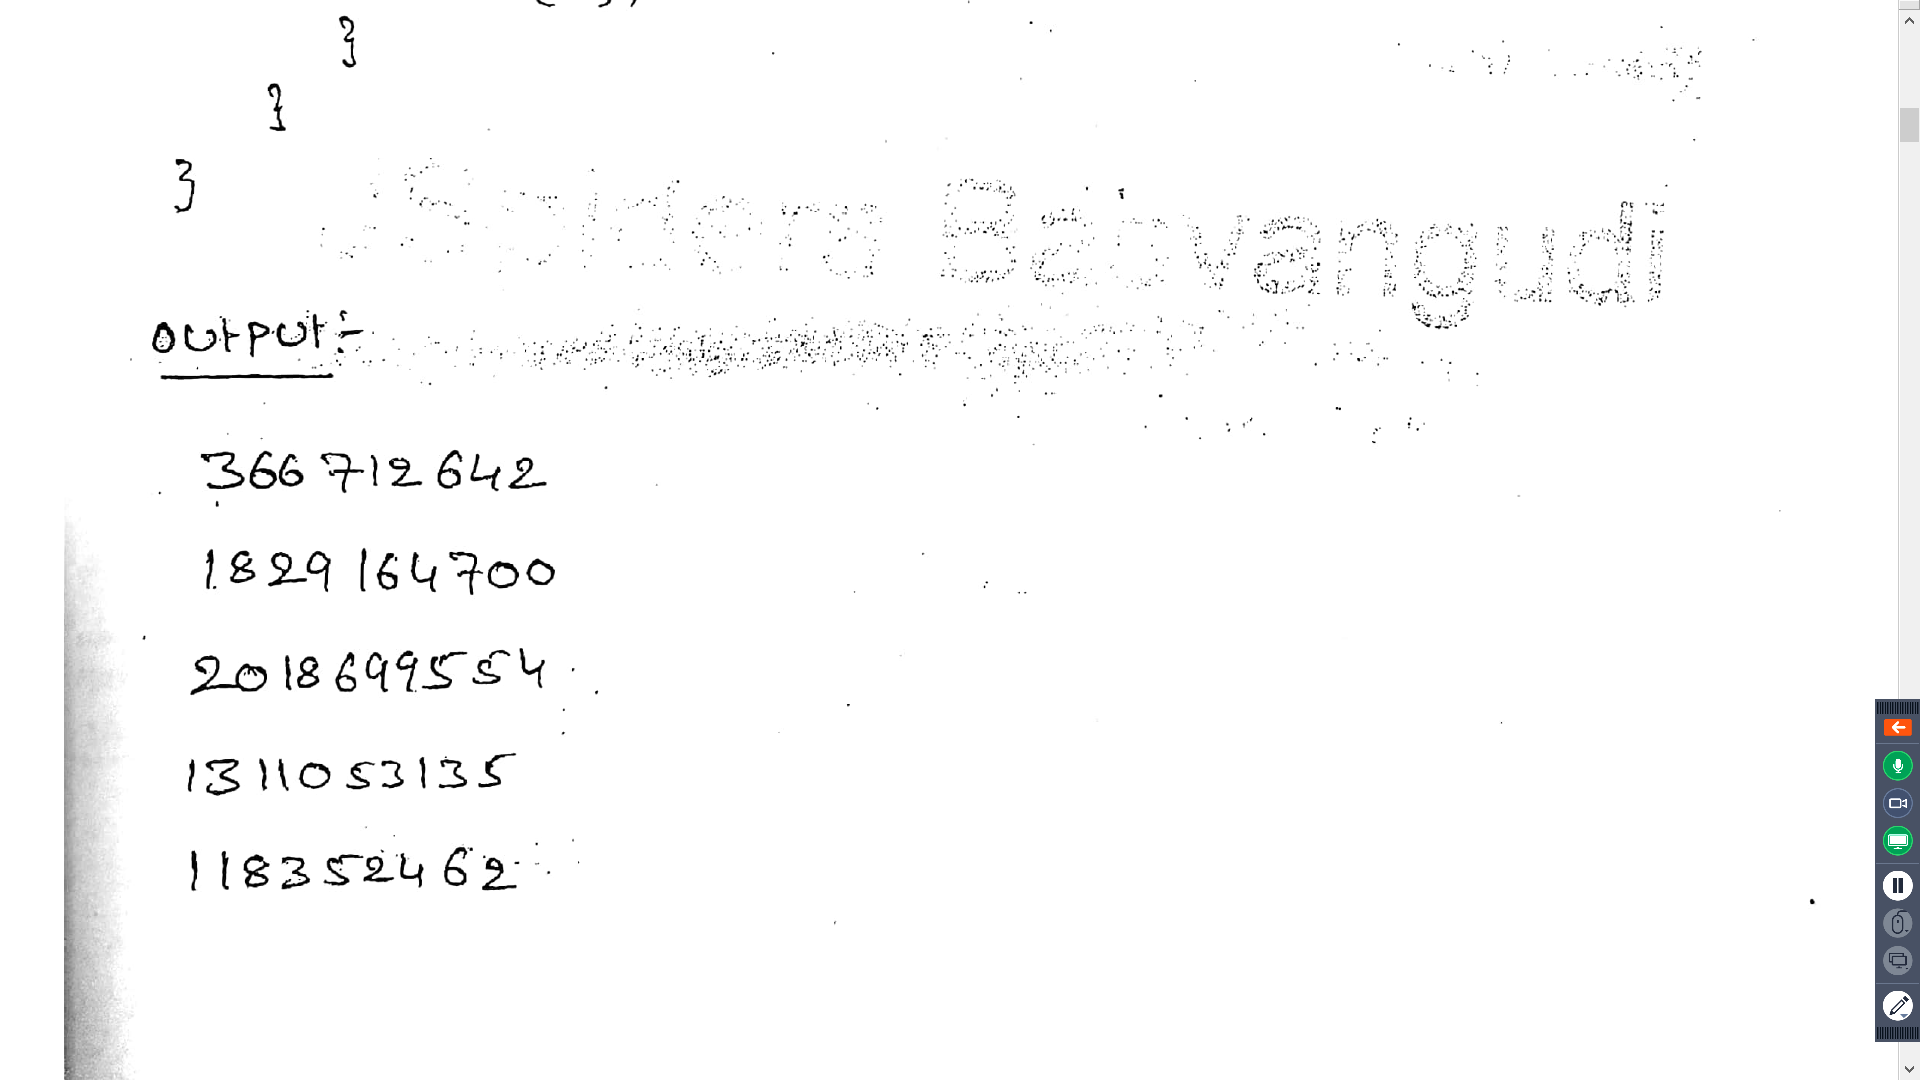 }
}
}
JSpiders Basvangudi
output:-
366712642
1829164700
2018699554
1311053135
118352462